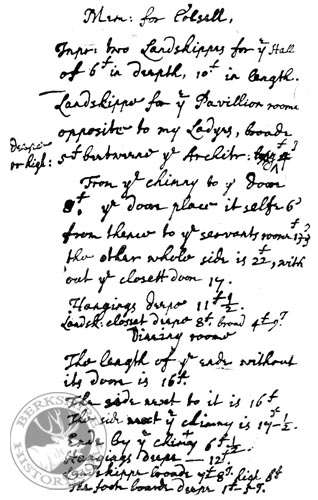 Mem: for Colsell,
Inpr: two Landskippes for yͤ Hall
of 6ᶠᵗ in depth, 10ᶠᵗ in length.
Landskippe for yͤ Pavillion roome
opposite to my Ladys, broade
deepe
or high: 5ᶠᵗ betweene yͤ Architr:
From yͤ chimny to yͤ doore
8ᶠᵗ. yͤ doore place it selfe 6
from thence to yͤ servants roome
the other whole side is 22ᶠᵗ, with
out yͤ closett doore 17.
Hangings deepe 11ᶠᵗ ½
Landsk: closet deepe 8ᶠᵗ. broad 4ᶠᵗ 9ᴵ.
Dinning roome
The length of yͤ ende without
its doore is 16ᶠᵗ.
The side next to it is 16ᶠᵗ
The side next yͤ chimny is 17-½.
Ende by yͤ chimny 6ᶠᵗ ½
Hangings deepe — 12ᶠᵗ
Landskippe broade 8ᴵ. high
The foot boarde deepe 1ᶠᵗ
BERKS
HISTOR